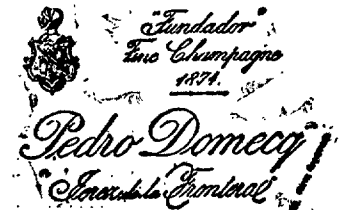 "Fundador"
Fine Champagne
1874.
Pedro Domecq
"Jerez de la Frontera"